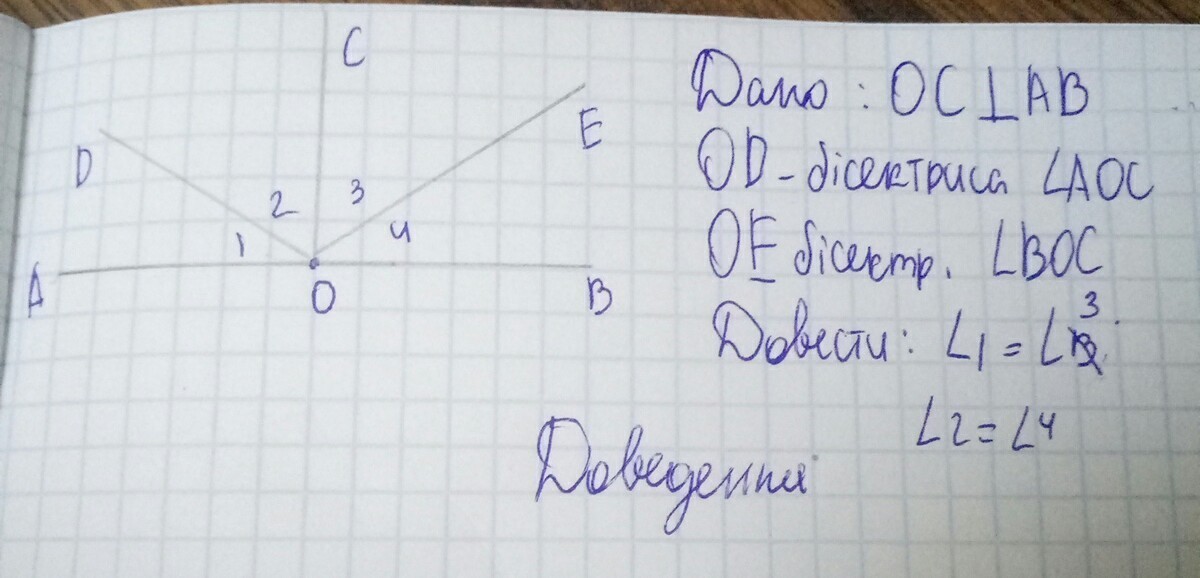 C
E
D
2 3
1 4
A O B
Дано : OC⊥AB
OD - бісектриса ∠AOC
OE бісектр. ∠BOC
Довести: ∠1 = ∠3
∠2 = ∠4
Доведення